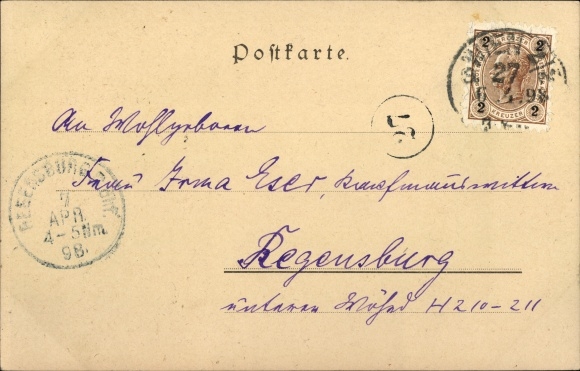 Postkarte.
2 2
27
6 4 98
2 KREUZER 2
5
An Wohlgeboren
Frau Irma Eser, Kaufmannswittwe
Regensburg
unteren Wöhrd H 210-211
REGENSBURG
7
APR.
4-5Nm.
98.